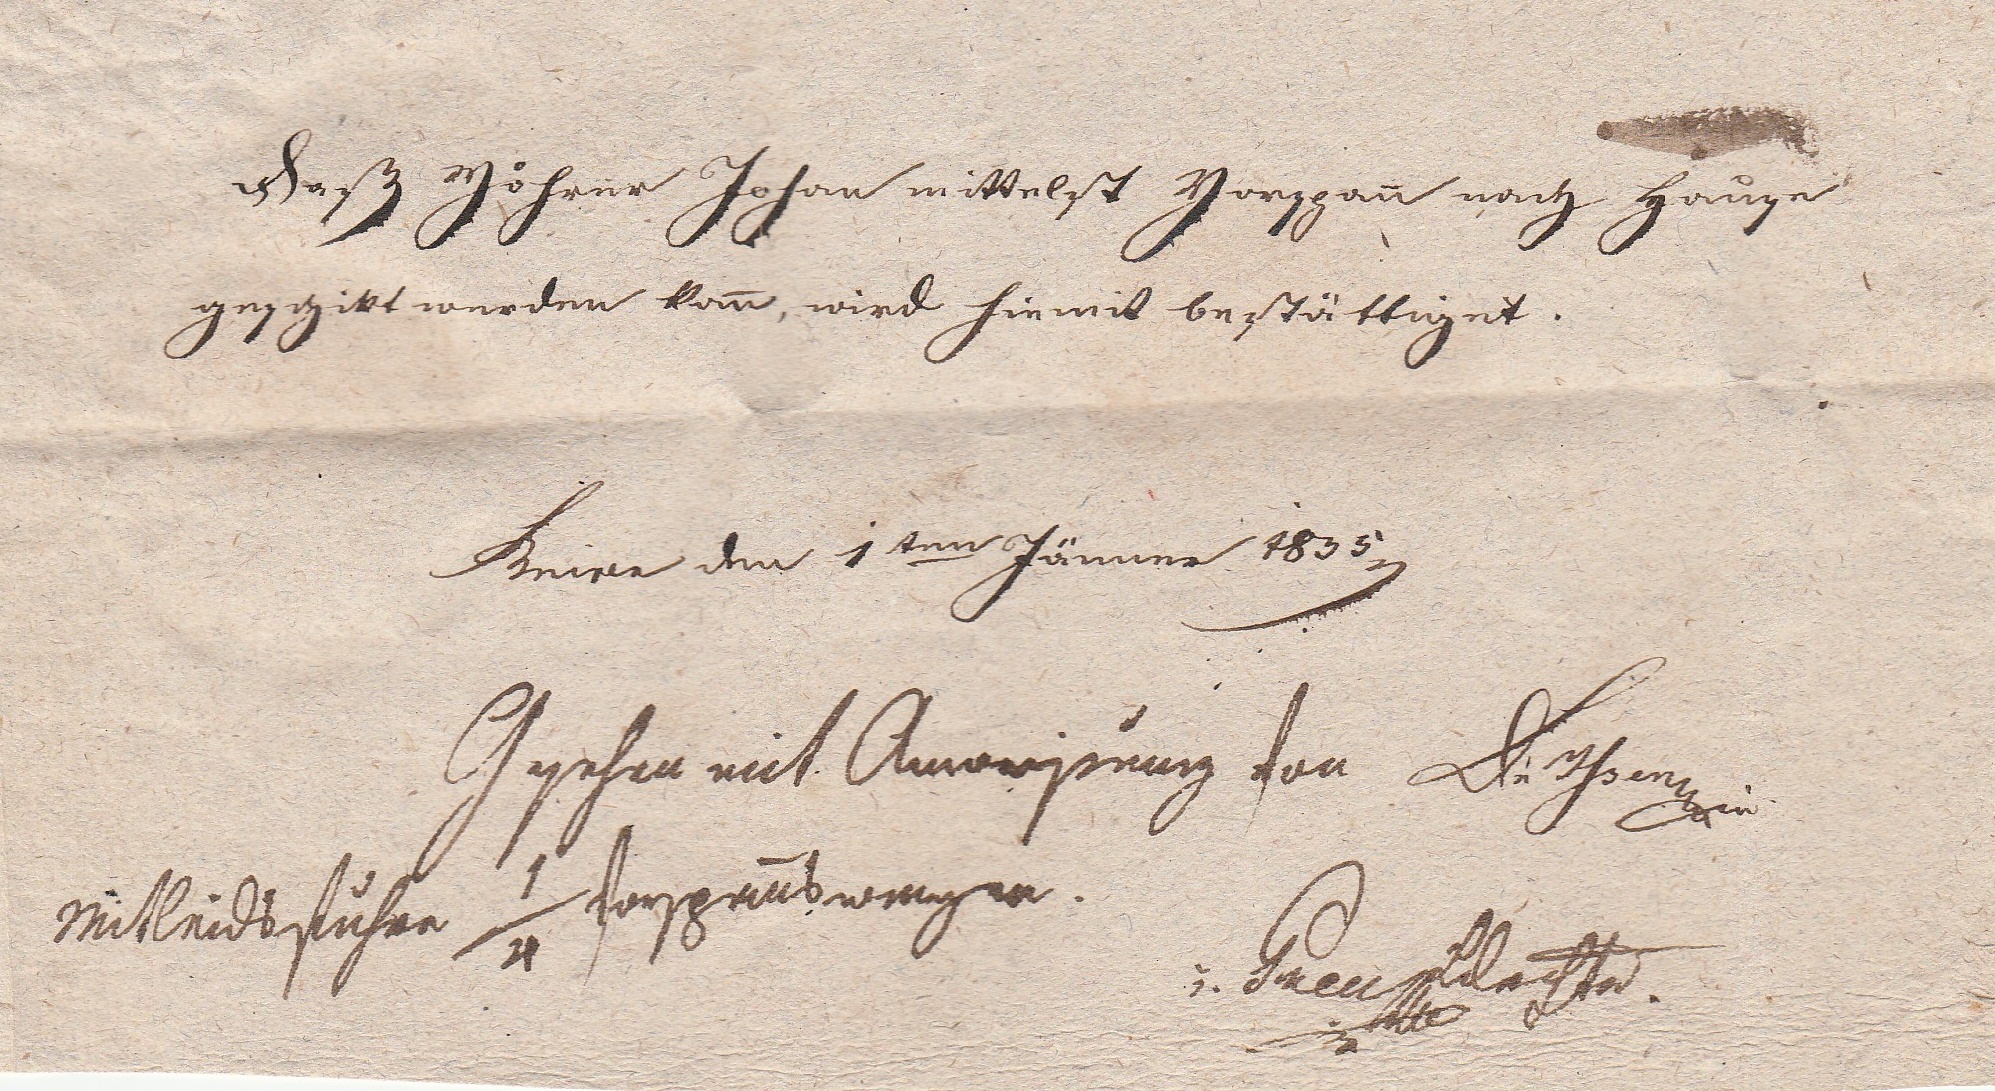 Daß Wöhrer Johan mittelst Vorspan̄ nach Hause
geschikt werden kan̄, wird hiemit bestättiget.
den 1ten Jänner 1835
Gesehen mit Anweisung von
Mitleidsfuhre 1/4 Vorspan̄swagen.